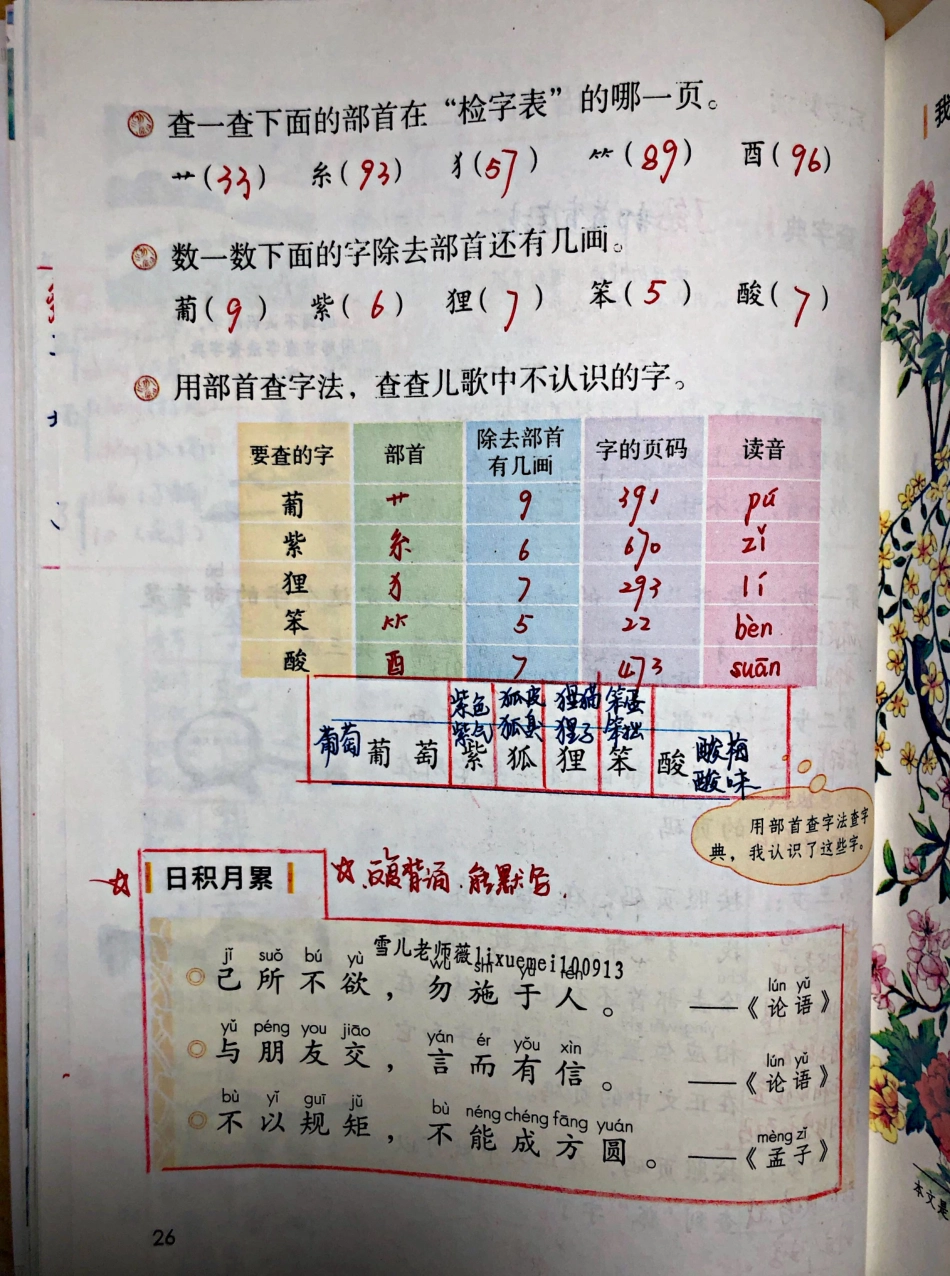 查一查下面的部首在“检字表”的哪一页。
艹(33) 糸(93) 犭(57) ⺮(89) 酉(96)
数一数下面的字除去部首还有几画。
葡(9) 紫(6) 狸(7) 笨(5) 酸(7)
用部首查字法，查查儿歌中不认识的字。
要查的字 部首 除去部首有几画 字的页码 读音
葡 艹 9 391 pú
紫 糸 6 670 zǐ
狸 犭 7 293 lí
笨 ⺮ 5 22 bèn
酸 酉 7 473 suān
紫色 狐皮 狸猫 笨蛋
紫气 狐臭 狸子 笨拙
葡萄 葡 萄 紫 狐 狸 笨 酸 酸梅
酸味
用部首查字法查字
典，我认识了这些字。
日积月累 反复背诵.能默写.
雪儿老师薇lixuemei100913
jǐ suǒ bú yù wù shī yú rén lún yǔ
己所不欲，勿施于人。 ——《论语》
yǔ péng you jiāo yán ér yǒu xìn lún yǔ
与朋友交，言而有信。 ——《论语》
bù yǐ guī jǔ bù néng chéng fāng yuán mèng zǐ
不以规矩，不能成方圆。 ——《孟子》
26
本文是